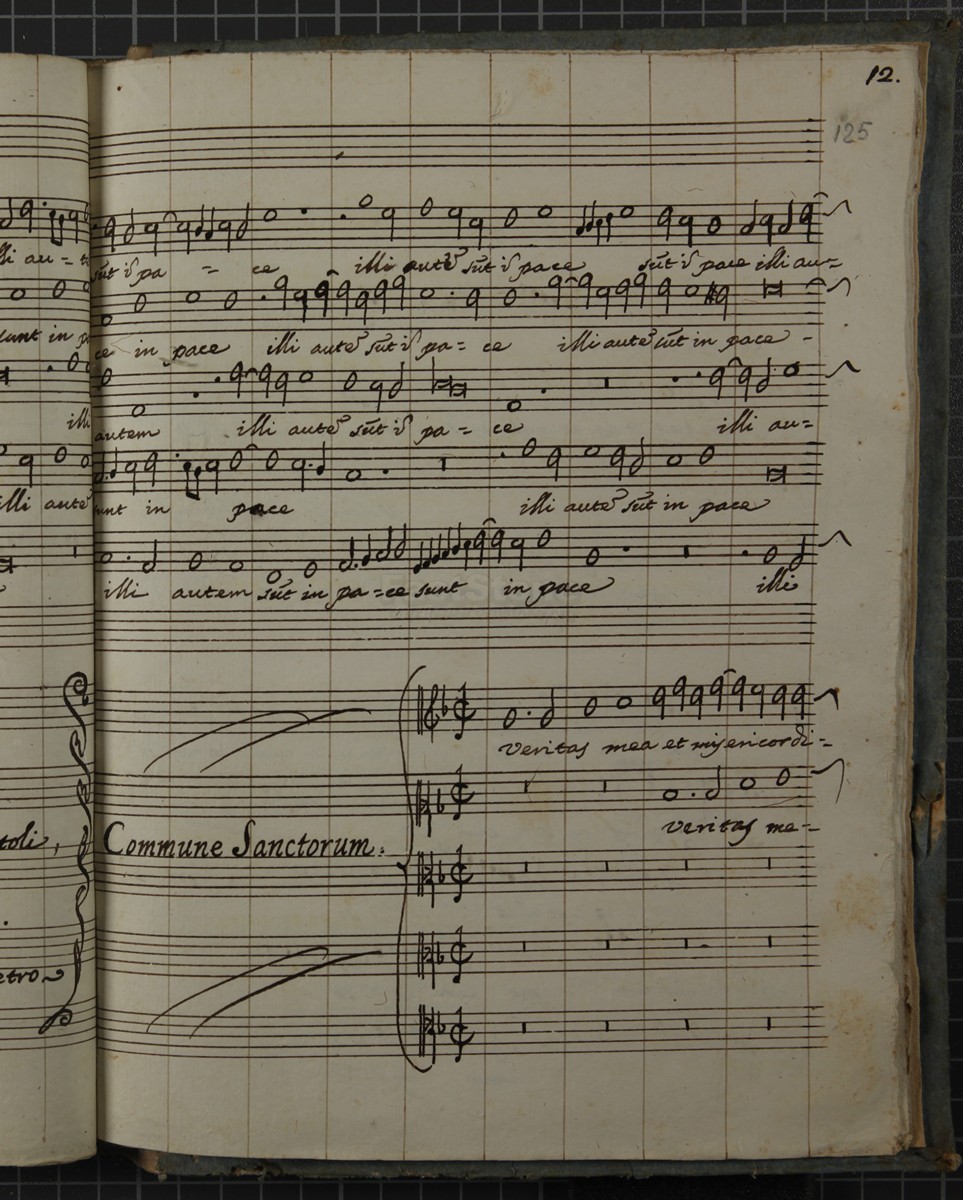 12.
125
sūt ī pa = ce illi autē sūt ī pace sūt ī pace illi au=
ce in pace illi autē sūt ī pa = ce illi autē sūt in pace -
autem illi autē sūt ī pa = ce illi au=
illi autē sunt in pace illi autē sūt in pace
illi autem sūt in pa = ce sunt in pace illi
veritas mea et misericordi =
veritas me =
toli,
Commune Sanctorum.
etro